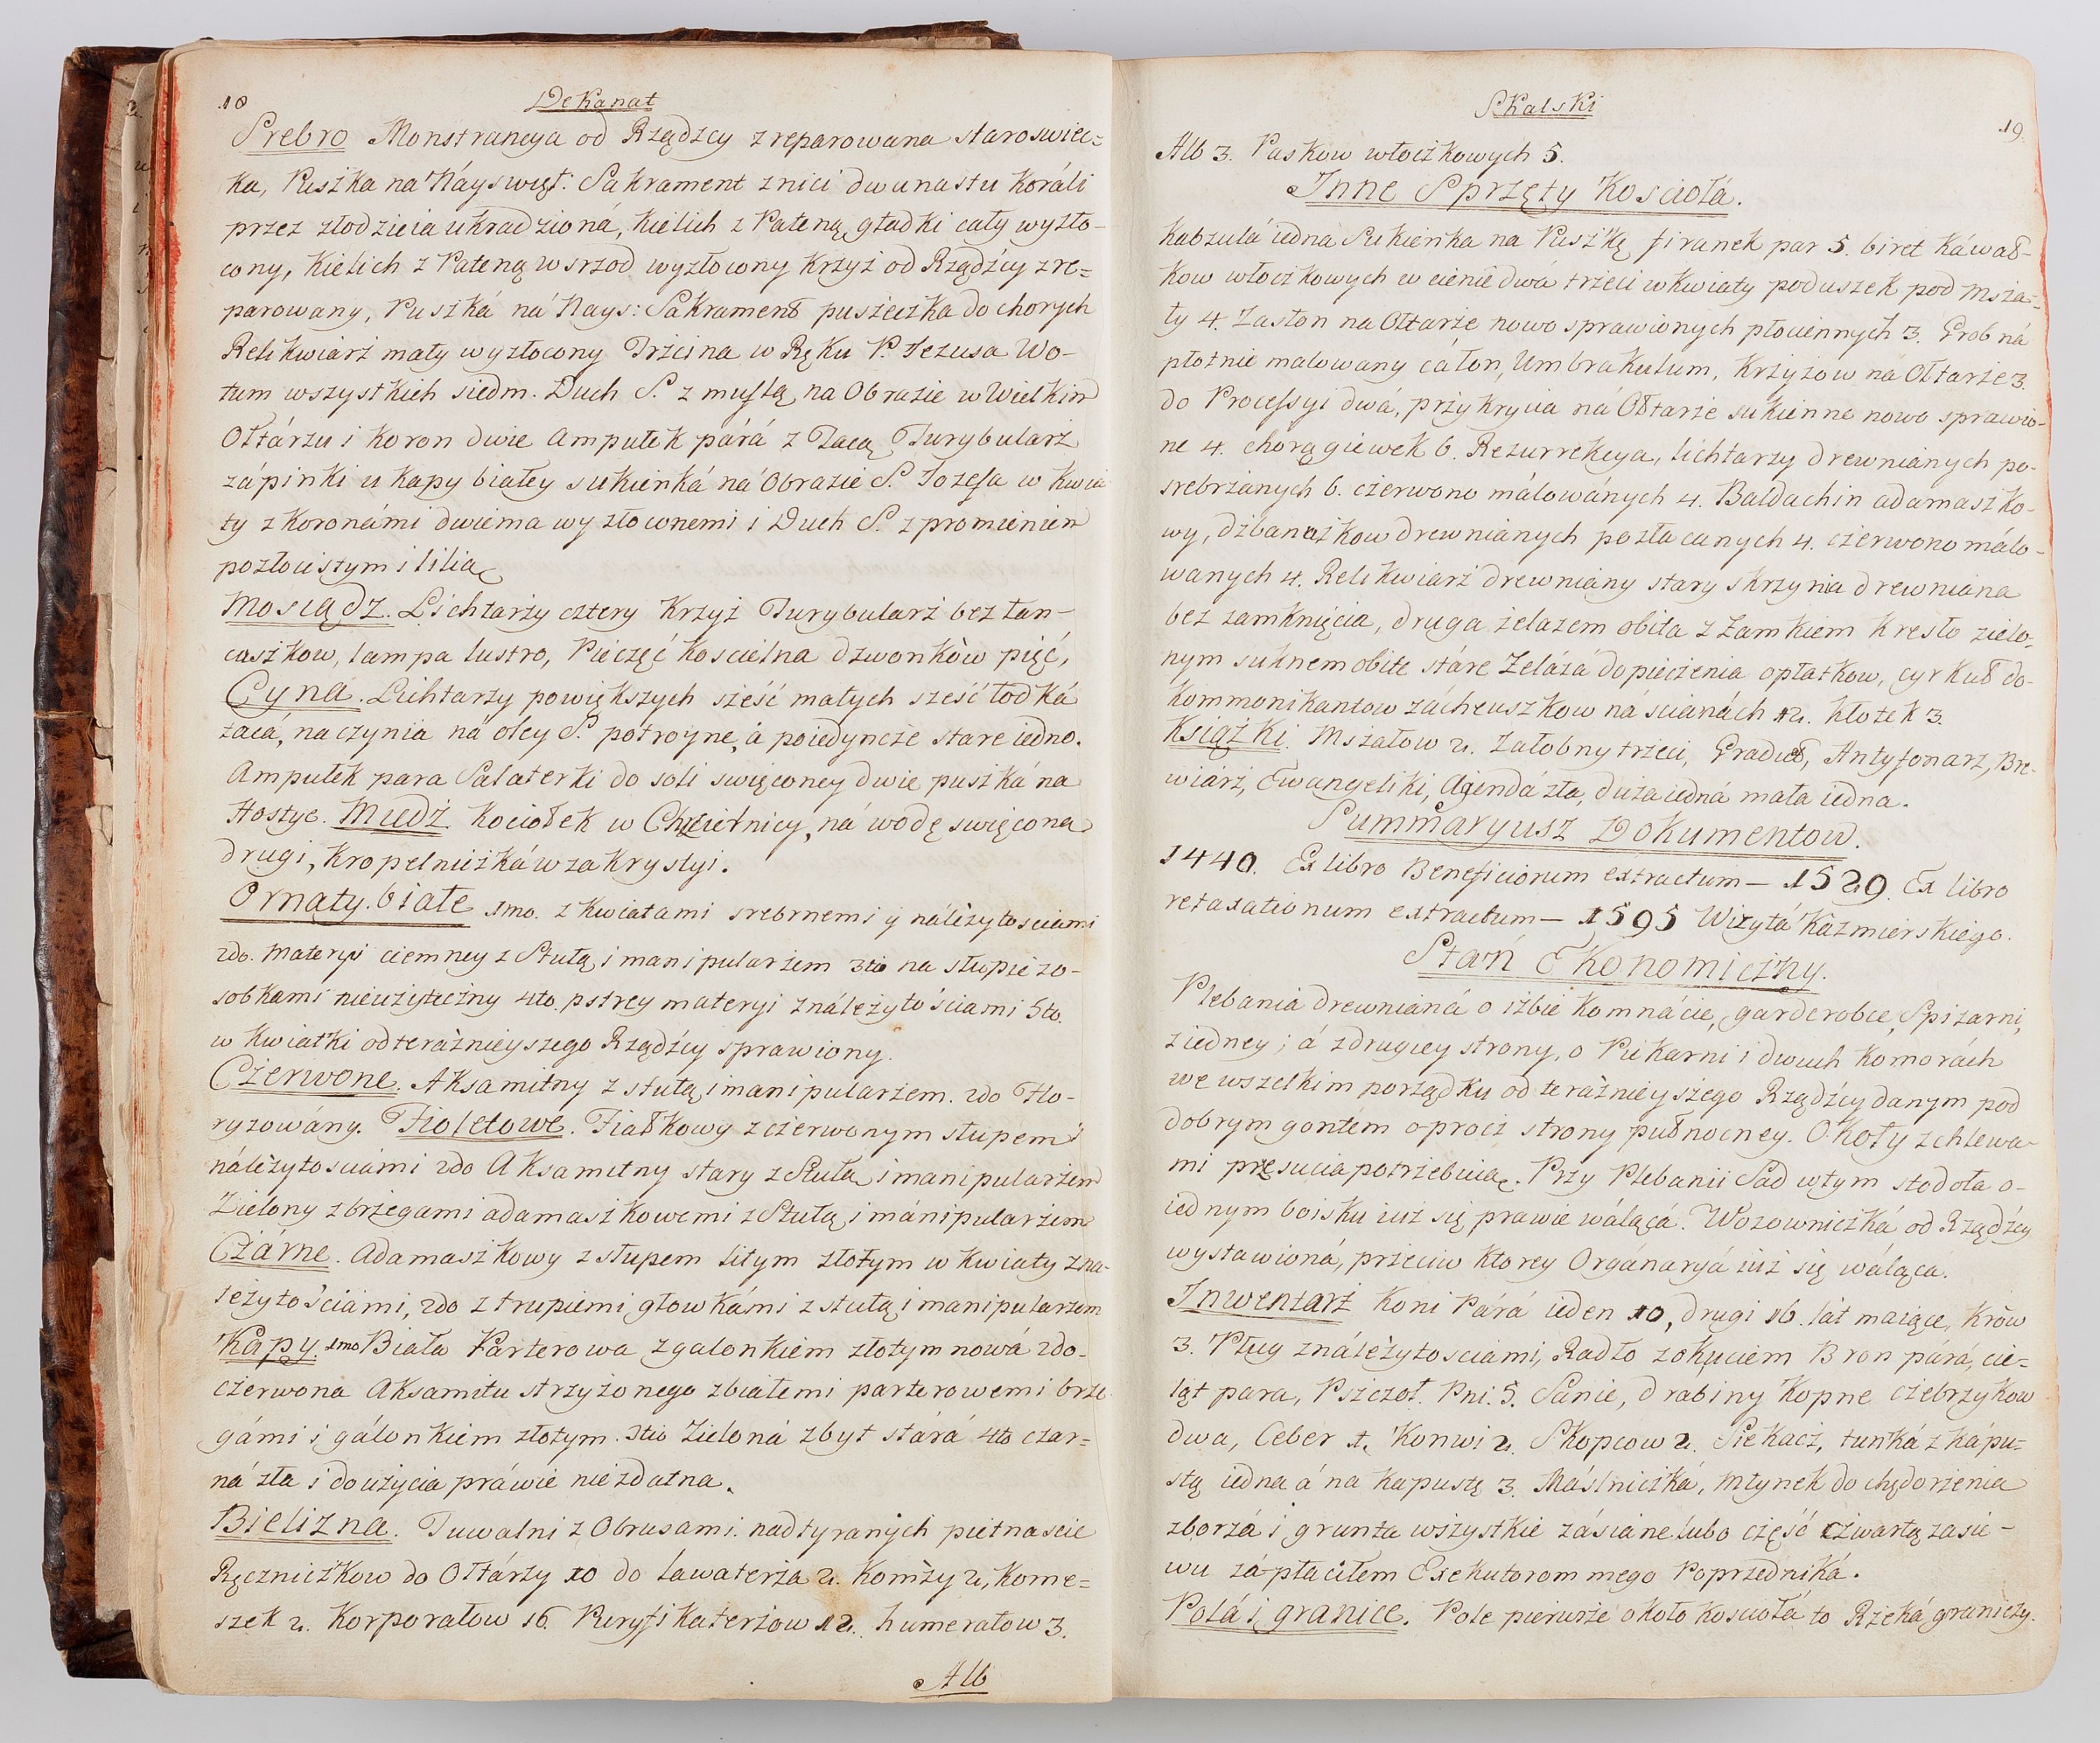 18
Dekanat
Srebro Monstrancya od Rządzcy zreparowana staroswiec=
ka, Puszka na Náyswięt: Sakrament z nici dwunastu koráli
przez złodzieia ukradzioná, Kielich z Pateną gładki cały wyzło-
cony, Kielich z Pateną wsrzod wyzłocony Krzyż od Rządźcy zre=
parowany, Puszká ná Nays: Sákrament puszeczka do chorych
Relikwiarz mały wyzłocony Trzcina w Ręku P. Jezusa Wo-
tum wszystkich siedm. Duch S. z muszlą na Obrazie w Wielkim
Ołtárzu i koron dwie Ampułek párá z Tacą Turybularz
zápinki u Kapy białey sukienká ná Obrazie S. Jozefa w kwia
ty z koronámi dwiema wyzłoconemi i Duch S. z promieniem
pozłocistym i lilią
Mosiądz. Lichtarzy cztery Krzyż Turybularz bez łan-
cuszkow, lampa lustro, Pieczęć koscielna dzwonków pięć,
Cyna. Lichtarzy powiększych sześć małych sześć łodká
tacá, naczynia ná oley S. potroyne, á poiedyncze stare iedno.
Ampułek para Salaterki do soli swięconey dwie puszká na
Hostye. Miedź Kociołek w Chrzcielnicy, ná wodę swięconą
drugi, Kropelniczká w zakrystyi.
Ornąty. białe 1mo. z kwiatami srebrnemi y náleżytosciami
2do. materyi ciemney z Stułą i manipularzem 3tio na słupie zo-
sobkami nieużyteczny 4to. pstrey materyi z náleżytościami 5to.
w kwiatki od teráznieyszego Rządźcy sprawiony.
Czerwone. Aksamitny z stułą i manipularzem. 2do Flo-
ryzowány. Fioletowe. Fiałkowy z czerwonym słupem z
náleżytosciámi 2do Aksamitny stary z Stułą i manipularzem
Zielony z brzegami adamaszkowemi z Stułą i mánipularzem
Czárne. Adamaszkowy z słupem litym złotym w kwiaty z na-
leżytościámi, 2do z trupiemi głowkámi z stułą i manipularzem
Kapy. 1mo Biała Parterowa z galonkiem złotym nowá 2do-
czerwona Aksamitu strzyżonego z białemi parterowemi brze
gámi i gálonkiem złotym. 3tio Zieloná zbyt stárá 4to czar=
ná zła i do użycia práwie niezdatna.
Bielizna. Tuwalni z Obrusami nadtyranych pietnascie
Ręczniczkow do Ołtárzy 10 do Lawaterza 2. Komży 2, kome=
szek 2. Korporałow 16. Puryfikaterzow 12. humerałow 3.
Alb
Skalski
19.
Alb 3. Paskow włoczkowych 5.
Inne Sprzęty Kosciołá.
kabzulá iedna Sukienka na Puszkę firanek par 5. biret káwał-
kow włoczkowych w cienie dwá trzeci w kwiaty poduszek pod msza-
ły 4. Zasłon na Ołtarze nowo sprawionych płociennych 3. Grob ná
płotnie malowany całon, Umbrakulum, Krzyżow ná Ołtarze 3.
do Processyi dwá, przykrycia ná Ołtarze sukienne nowo sprawio-
ne 4. chorągiewek 6. Rezurrekcya, lichtarzy drewnianych po-
srebrzánych 6. czerwono málowánych 4. Baldachin adamaszko-
wy, dzbanuszkow drewnianych pozłacanych 4. czerwono málo-
wanych 4. Relikwiarz drewniany stary skrzynia drewniana
bez zamknięcia, druga żelazem obita z Zamkiem krzesło zielo-
nym suknem obite stáre Zelázá do pieczenia opłatkow, cyrkuł do-
kommonikantow zácheuszkow ná scianách 12. kłotek 3.
Książki. Mszałow 2. Załobny trzeci, Graduał, Antyfonarz, Bre-
wiárz, Ewangeliki, Agendá zła, duża iedná mała iedna.
Summaryusz Dokumentow.
1440. Ex libro Beneficiorum extractum — 1529. Ex libro
retaxationum extractum — 1595 Wizytá Kazmierskiego.
Stan Ekonomiczny.
Plebania drewnianá o izbie komnácie, garderobce, Spizarni,
z iedney; á z drugiey strony, o Piekarni i dwuch komorách
we wszelkim porządku od teráznieyszego Rządźcy danym pod
dobrym gontem oprocz strony pułnocney. Okoły z chlewa-
mi przesucia potrzebuią. Przy Plebanii Sad w tym stodoła o-
iednym boisku iuż się prawie wáląca. Wozowniczká od Rządźcy
wystawioná, przeciw ktorey Orgánaryá iuż się wáląca.
Inwentarz Koni Párá ieden 10, drugi 16. lat maiące, krów
3. Pług z náleżytosciámi, Radło z okuciem Bron párá, cie-
ląt para, Pszczoł. Pni. 5. Sanie, drabiny kopne czebrzykow
dwa, Ceber 1. Konwi 2. Skopcow 2. Siekacz, tunká z kápu=
stą iedna á na kapustę 3. Máslniczká, Młynek do chędożenia
zborzá i grunta wszystkie zásiane lubo część czwartą zasie-
wu zápłaciłem Exekutorom mego Poprzedniká.
Polá i granice. Pole pierwsze około kosciołá to Rzeká graniczy.